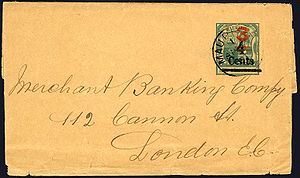 3
4
Cents
Merchant Banking Compy
112 Cannon St.
London E.C.